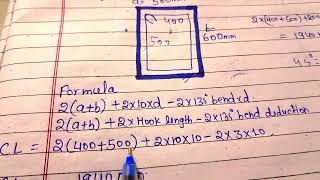 a= 500mm
400
500
b=
600mm
2x(400+500)+200
1940
45°
Formula
2(a+b) + 2x10xd - 2x135° bendxd.
2(a+b) + 2x Hook length - 2x135° bend deduction
CL = 2(400+500) + 2x10x10 - 2x3x10
1940